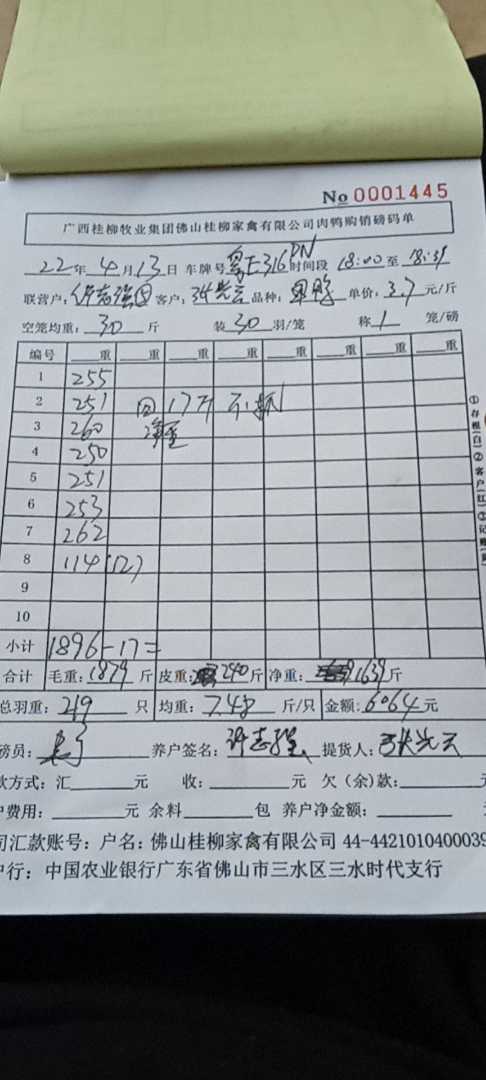 No 0001445
广西桂柳牧业集团佛山桂柳家禽有限公司肉鸭购销磅码单
22年4月13日 车牌号 粤E316DN 时间段 18:00至18:31
联营户: 许志强 客户: 张光云 品种: 单价: 3.7元/斤
空笼均重: 30斤 装30羽/笼 称1笼/磅
编号 重 重 重 重 重 重 重 重
1 255
2 251 回17斤 不抓
3 260 净重
4 250
5 251
6 253
7 262
8 114(12)
9
10
小计 1896-17=
合计 毛重: 1879斤 皮重: 240斤 净重: 1639斤
总羽重: 219只 均重: 7.48斤/只 金额: 6064元
磅员: 养户签名: 许志强 提货人: 张光云
款方式: 汇 元 收: 元 欠(余)款:
户费用: 元 余料 包 养户净金额:
司汇款账号: 户名: 佛山桂柳家禽有限公司 44-4421010400039
户行: 中国农业银行广东省佛山市三水区三水时代支行
①存根(白)②客户(红)③记账(